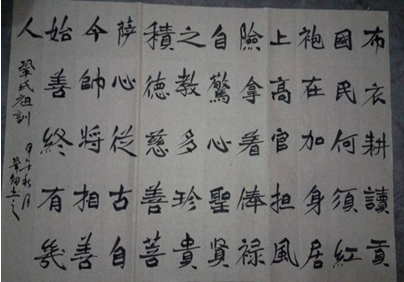 布衣耕讀貢
國民何須紅
袍在加身居
上高官担風
險拿着俸禄
自驚心聖賢
之教多珍貴
積德慈善菩
薩心從古自
今帥將相善
始善終有幾
人
鞏氏祖訓
甲午秋月